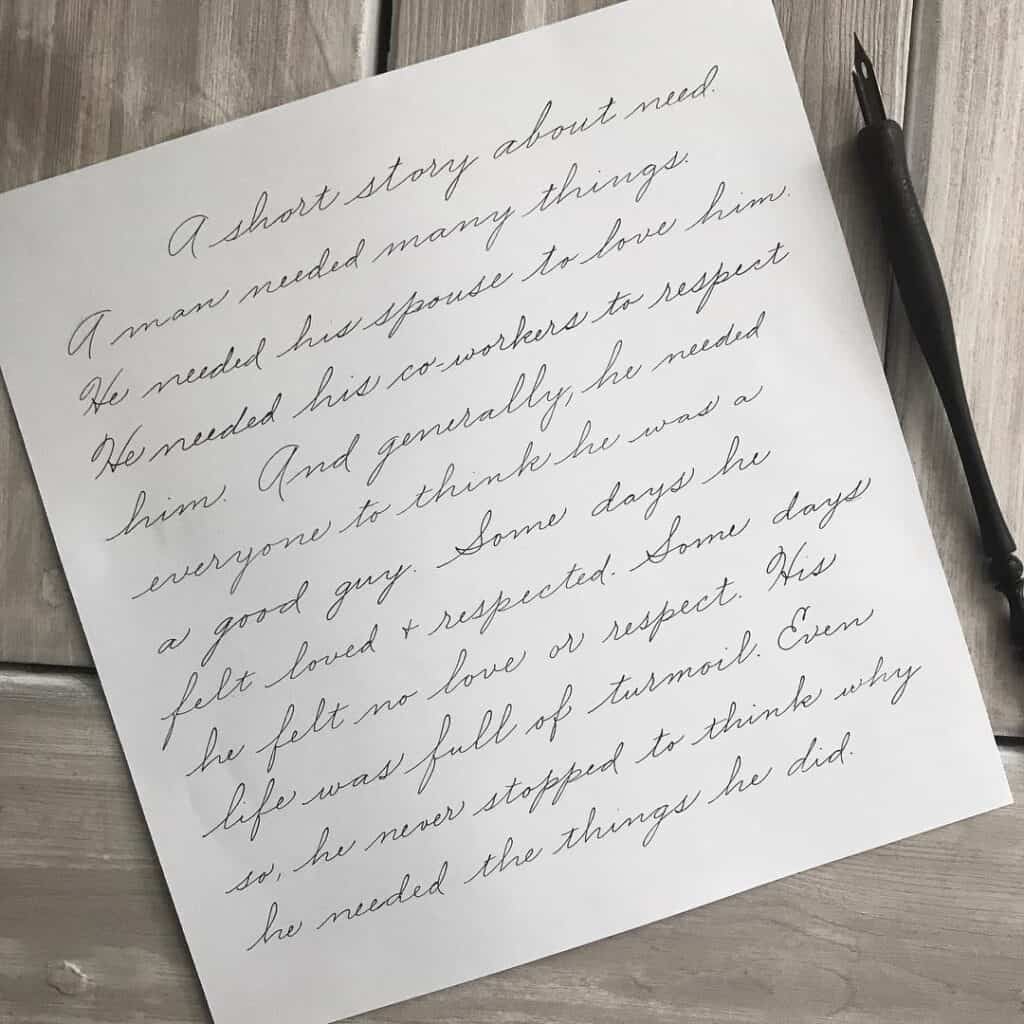 A short story about need.
A man needed many things.
He needed his spouse to love him.
He needed his co-workers to respect
him. And generally, he needed
everyone to think he was a
a good guy. Some days he
felt loved + respected. Some days
he felt no love or respect. His
life was full of turmoil. Even
so, he never stopped to think why
he needed the things he did.